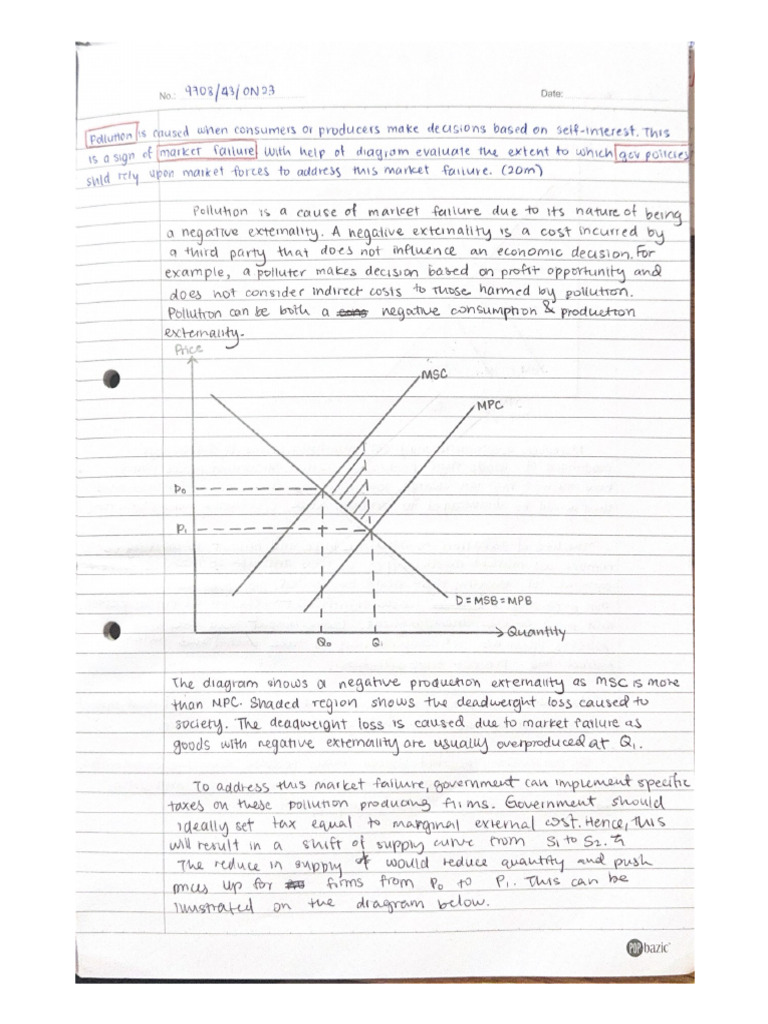 No.: 9708/43/ON23 Date:
Pollution is caused when consumers or producers make decisions based on self-interest. This
is a sign of market failure with help of diagram evaluate the extent to which gov policies
shld rely upon market forces to address this market failure. (20m)
Pollution is a cause of market failure due to its nature of being
a negative externality. A negative externality is a cost incurred by
a third party that does not influence an economic decision. For
example, a polluter makes decision based on profit opportunity and
does not consider indirect costs to those harmed by pollution.
Pollution can be both a negative consumption & production
externality.
Price
MSC
MPC
P0
P1
D = MSB = MPB
Q0 Q1
Quantity
The diagram shows a negative production externality as MSC is more
than MPC. Shaded region shows the deadweight loss caused to
society. The deadweight loss is caused due to market failure as
goods with negative externality are usually overproduced at Q1.
To address this market failure, government can implement specific
taxes on these pollution producing firms. Government should
ideally set tax equal to marginal external cost. Hence, this
will result in a shift of supply curve from S1 to S2.
The reduce in supply would reduce quantity and push
prices up for firms from P0 to P1. This can be
illustrated on the diagram below.
POP bazic